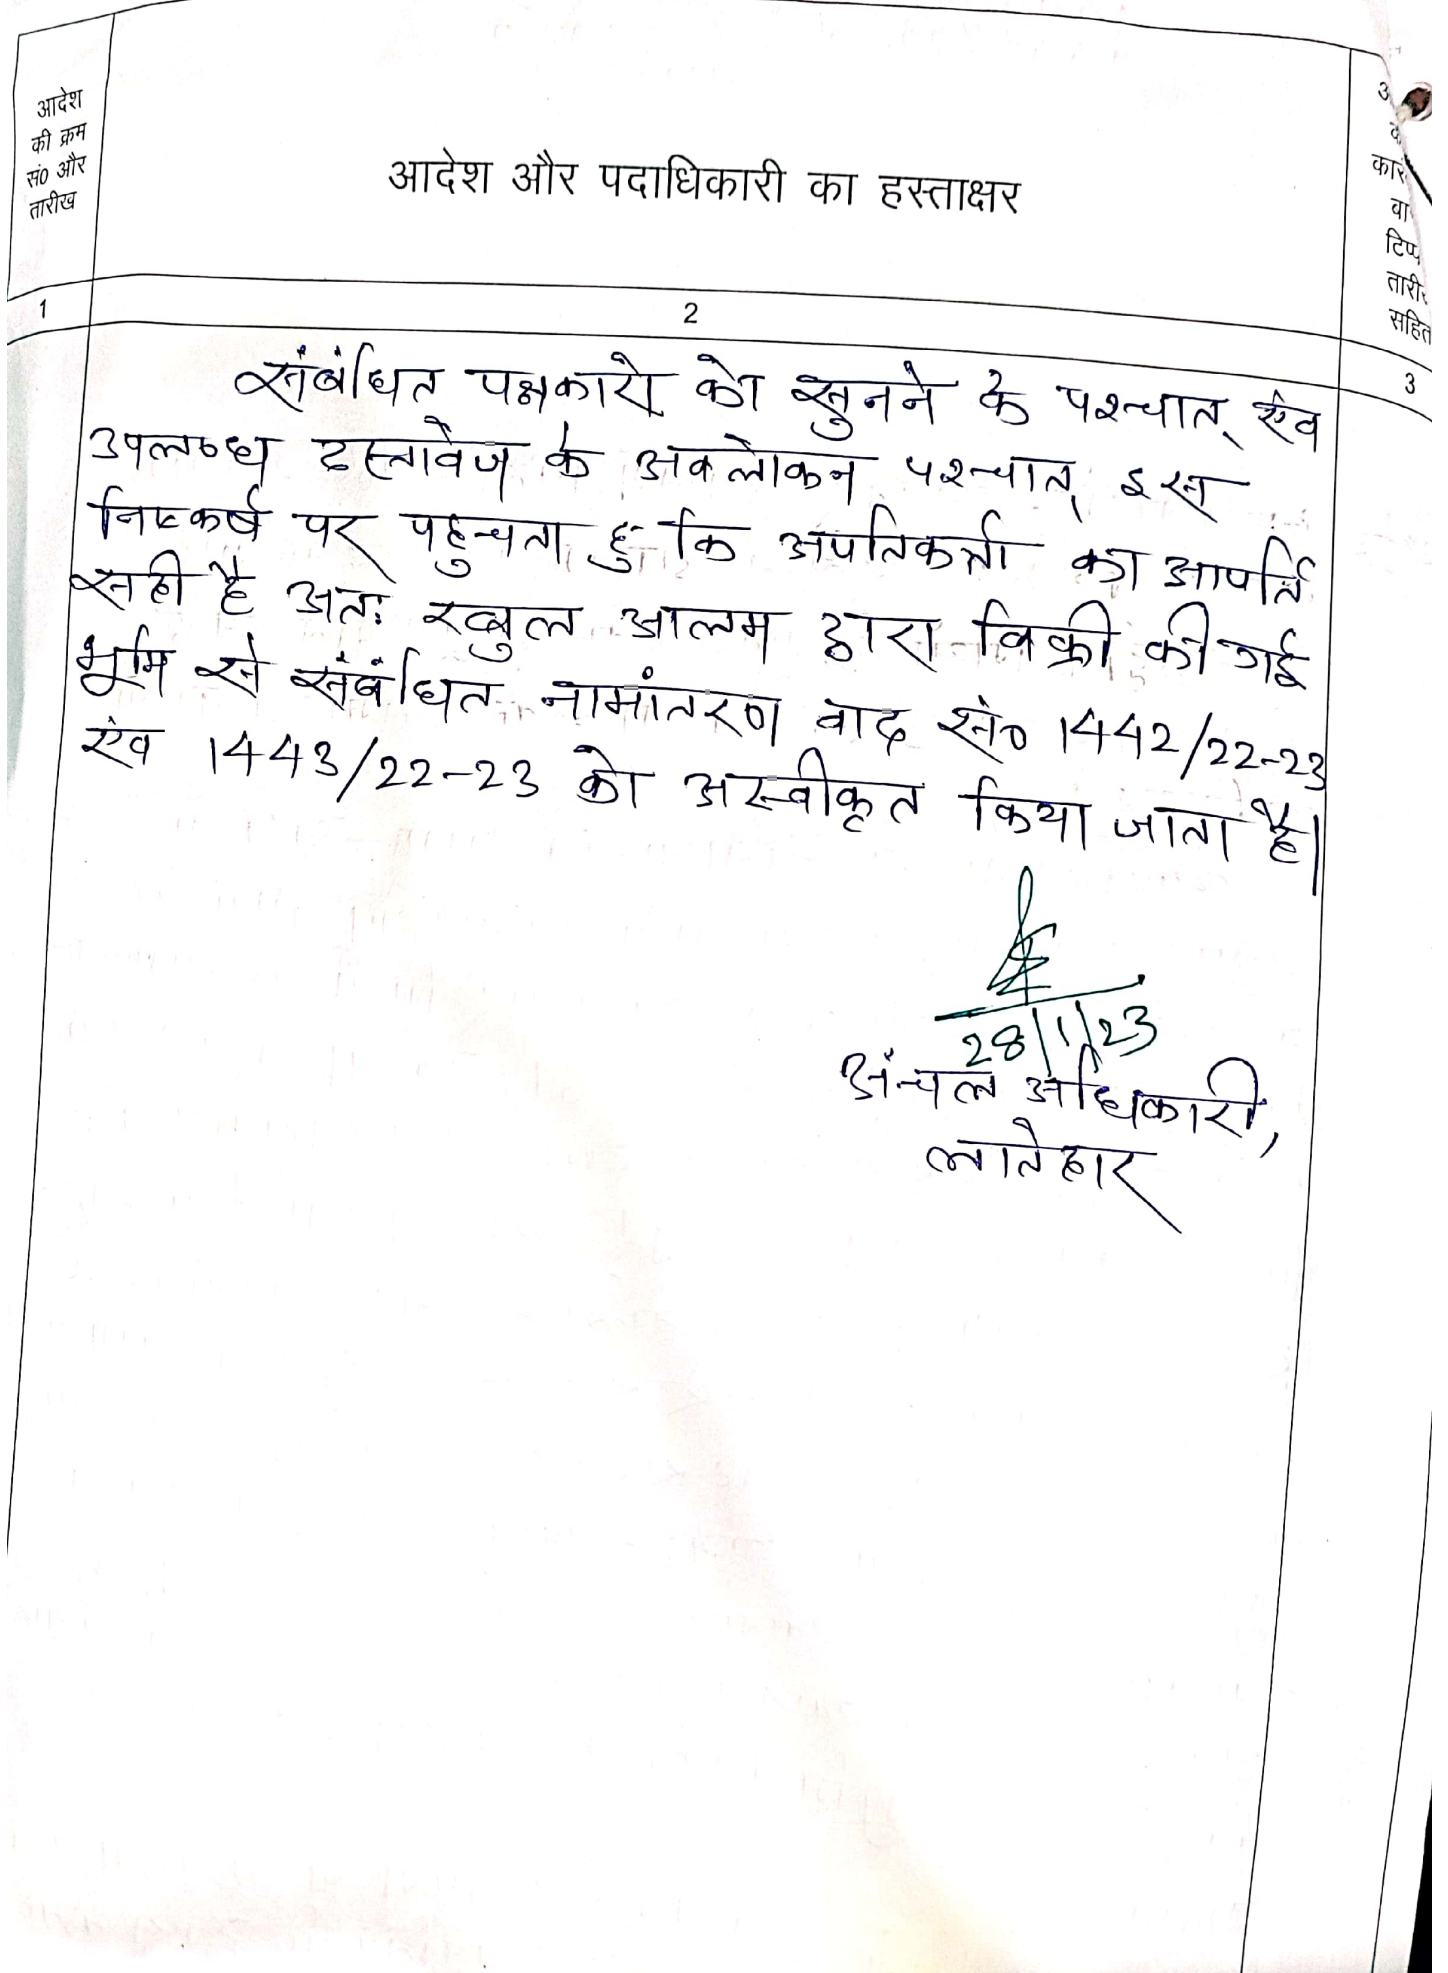 आदेश
की क्रम
सं० और
तारीख
आदेश और पदाधिकारी का हस्ताक्षर
टिप्प
तारी
सहित
1
2
3
संबंधित पक्षकारो को सुनने के पश्चात् एंव
उपलब्ध दस्तावेज के अवलोकन पश्चात् इस
निष्कर्ष पर पहुचता हु कि अपतिकर्ता का आपर्ति
सही है अतः रब्बुल आलम द्वारा बिक्री की गई
भूमि से संबंधित नामांतरण वाद सं० 1442/22-23
एंव 1443/22-23 को अस्वीकृत किया जाता है।
28/1/23
अंचल अधिकारी,
लातेहार